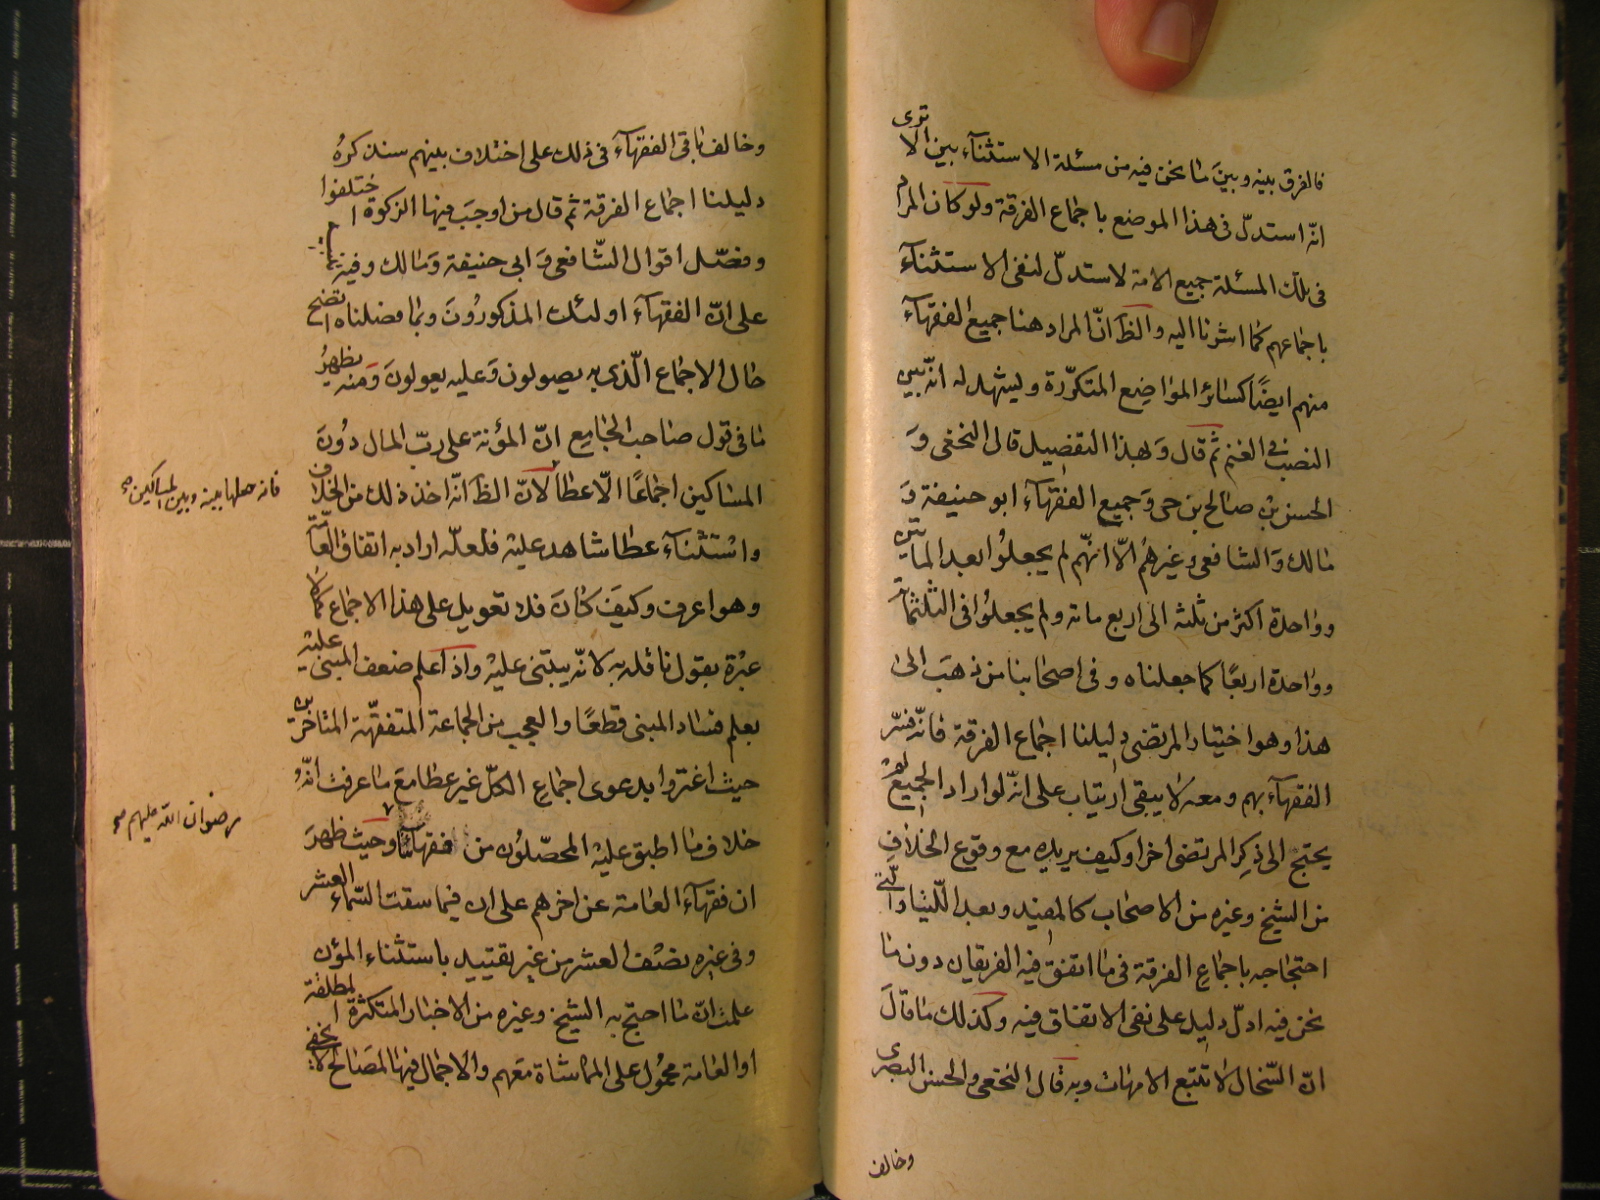 فالفرق بينه وبين ما نحن فيه من مسئلة الاستثناء بين الاقوى
انه استدل في هذا الموضع باجماع الفرقة ولو كان المراد
في تلك المسئلة جميع الامة لاستدل لنفى الاستثناء
باجماعهم كما اشرنا اليه والظ ان المراد هنا جميع الفقهآء
منهم ايضًا كسائر المواضع المتكررة وليشهد له انه بين
النصب في الغنم ثم قال وبهذا التفصيل قال النخعى و
الحسن بن صالح بن حى وجميع الفقهآء ابو حنيفة و
مالك والشافعى وغيرهم الّا انّهم لم يجعلوا بعد المأتين
وواحدة اكثر من ثلثه الى اربع مائة ولم يجعلوا في الثلثمآة
وواحدة اربعًا كما جعلناه وفى اصحابنا من ذهب الى
هذا وهو اختيار المرتضى دليلنا اجماع الفرقة فانه فسّر
الفقهآء بهم ومعه لا يبقى ارتياب على انه لو اراد الجميع لم
يحتج الى ذكر المرتضى اخرا وكيف يريده مع وقوع الخلاف
من الشيخ وغيره من الاصحاب كالمفيد وبعد اللّتيا والّتى
احتجاجه باجماع الفرقة في ما اتفق فيه الفريقان دون ما
نحن فيه ادلّ دليل على نفى الاتفاق فيه وكذلك ما قال
انّ السّخال لا تتبع الامهات وبه قال النخعى والحسن البصرى
وخالف
وخالف باقى الفقهآء في ذلك على اختلاف بينهم سنذكرهُ
دليلنا اجماع الفرقة ثم قال من اوجب فيها الزكوة اختلفوا
وفصّل اقوال الشّافعى وابى حنيفة ومالك وفيه
على انّ الفقهآء اولئك المذكورون وبما فصلناه اتضح
حال الاجماع الّذى به يصولون وعليه يعولون ومنه يظهر
ما في قول صاحب الجامع انّ المؤنة على ربّ المال دون
المساكين اجماعًا الّا عطا لانّ الظ انّه اخذ ذلك من الخلاف
فانه جعلها بينه وبين المساكين صح
واستثنآء عطا شاهد عليه فلعلّه اراد به اتفاق العامّة
وهو اعرف وكيف كان فلا تعويل على هذا الاجماع كما لا
عبرة بقول ناقله به لانّه يبتنى عليه واذ اعلم ضعف المبنى عليه
يعلم فساد المبنى قطعًا والعجب من الجماعة المتفقّهة المتاخّرين
حيث اغتروا بدعوى اجماع الكلّ غير عطا مع ما عرفت انّه
خلاف ما اطبق عليه المحصّلون من فقهائنا وحيث ظهر
رضوان الله عليهم صح
ان فقهآء العامة عن اخرهم على ان فيما سقت السّماء العشر
وفى غيره نصف العشر من غير تقييد باستثناء المؤن
علمت انّ ما احتج به الشيخ وغيره من الاخبار المتكثرة المطلقة
او العامة محمول على المماشاة معهم والاجمال فيها لمصالح لا يخفى